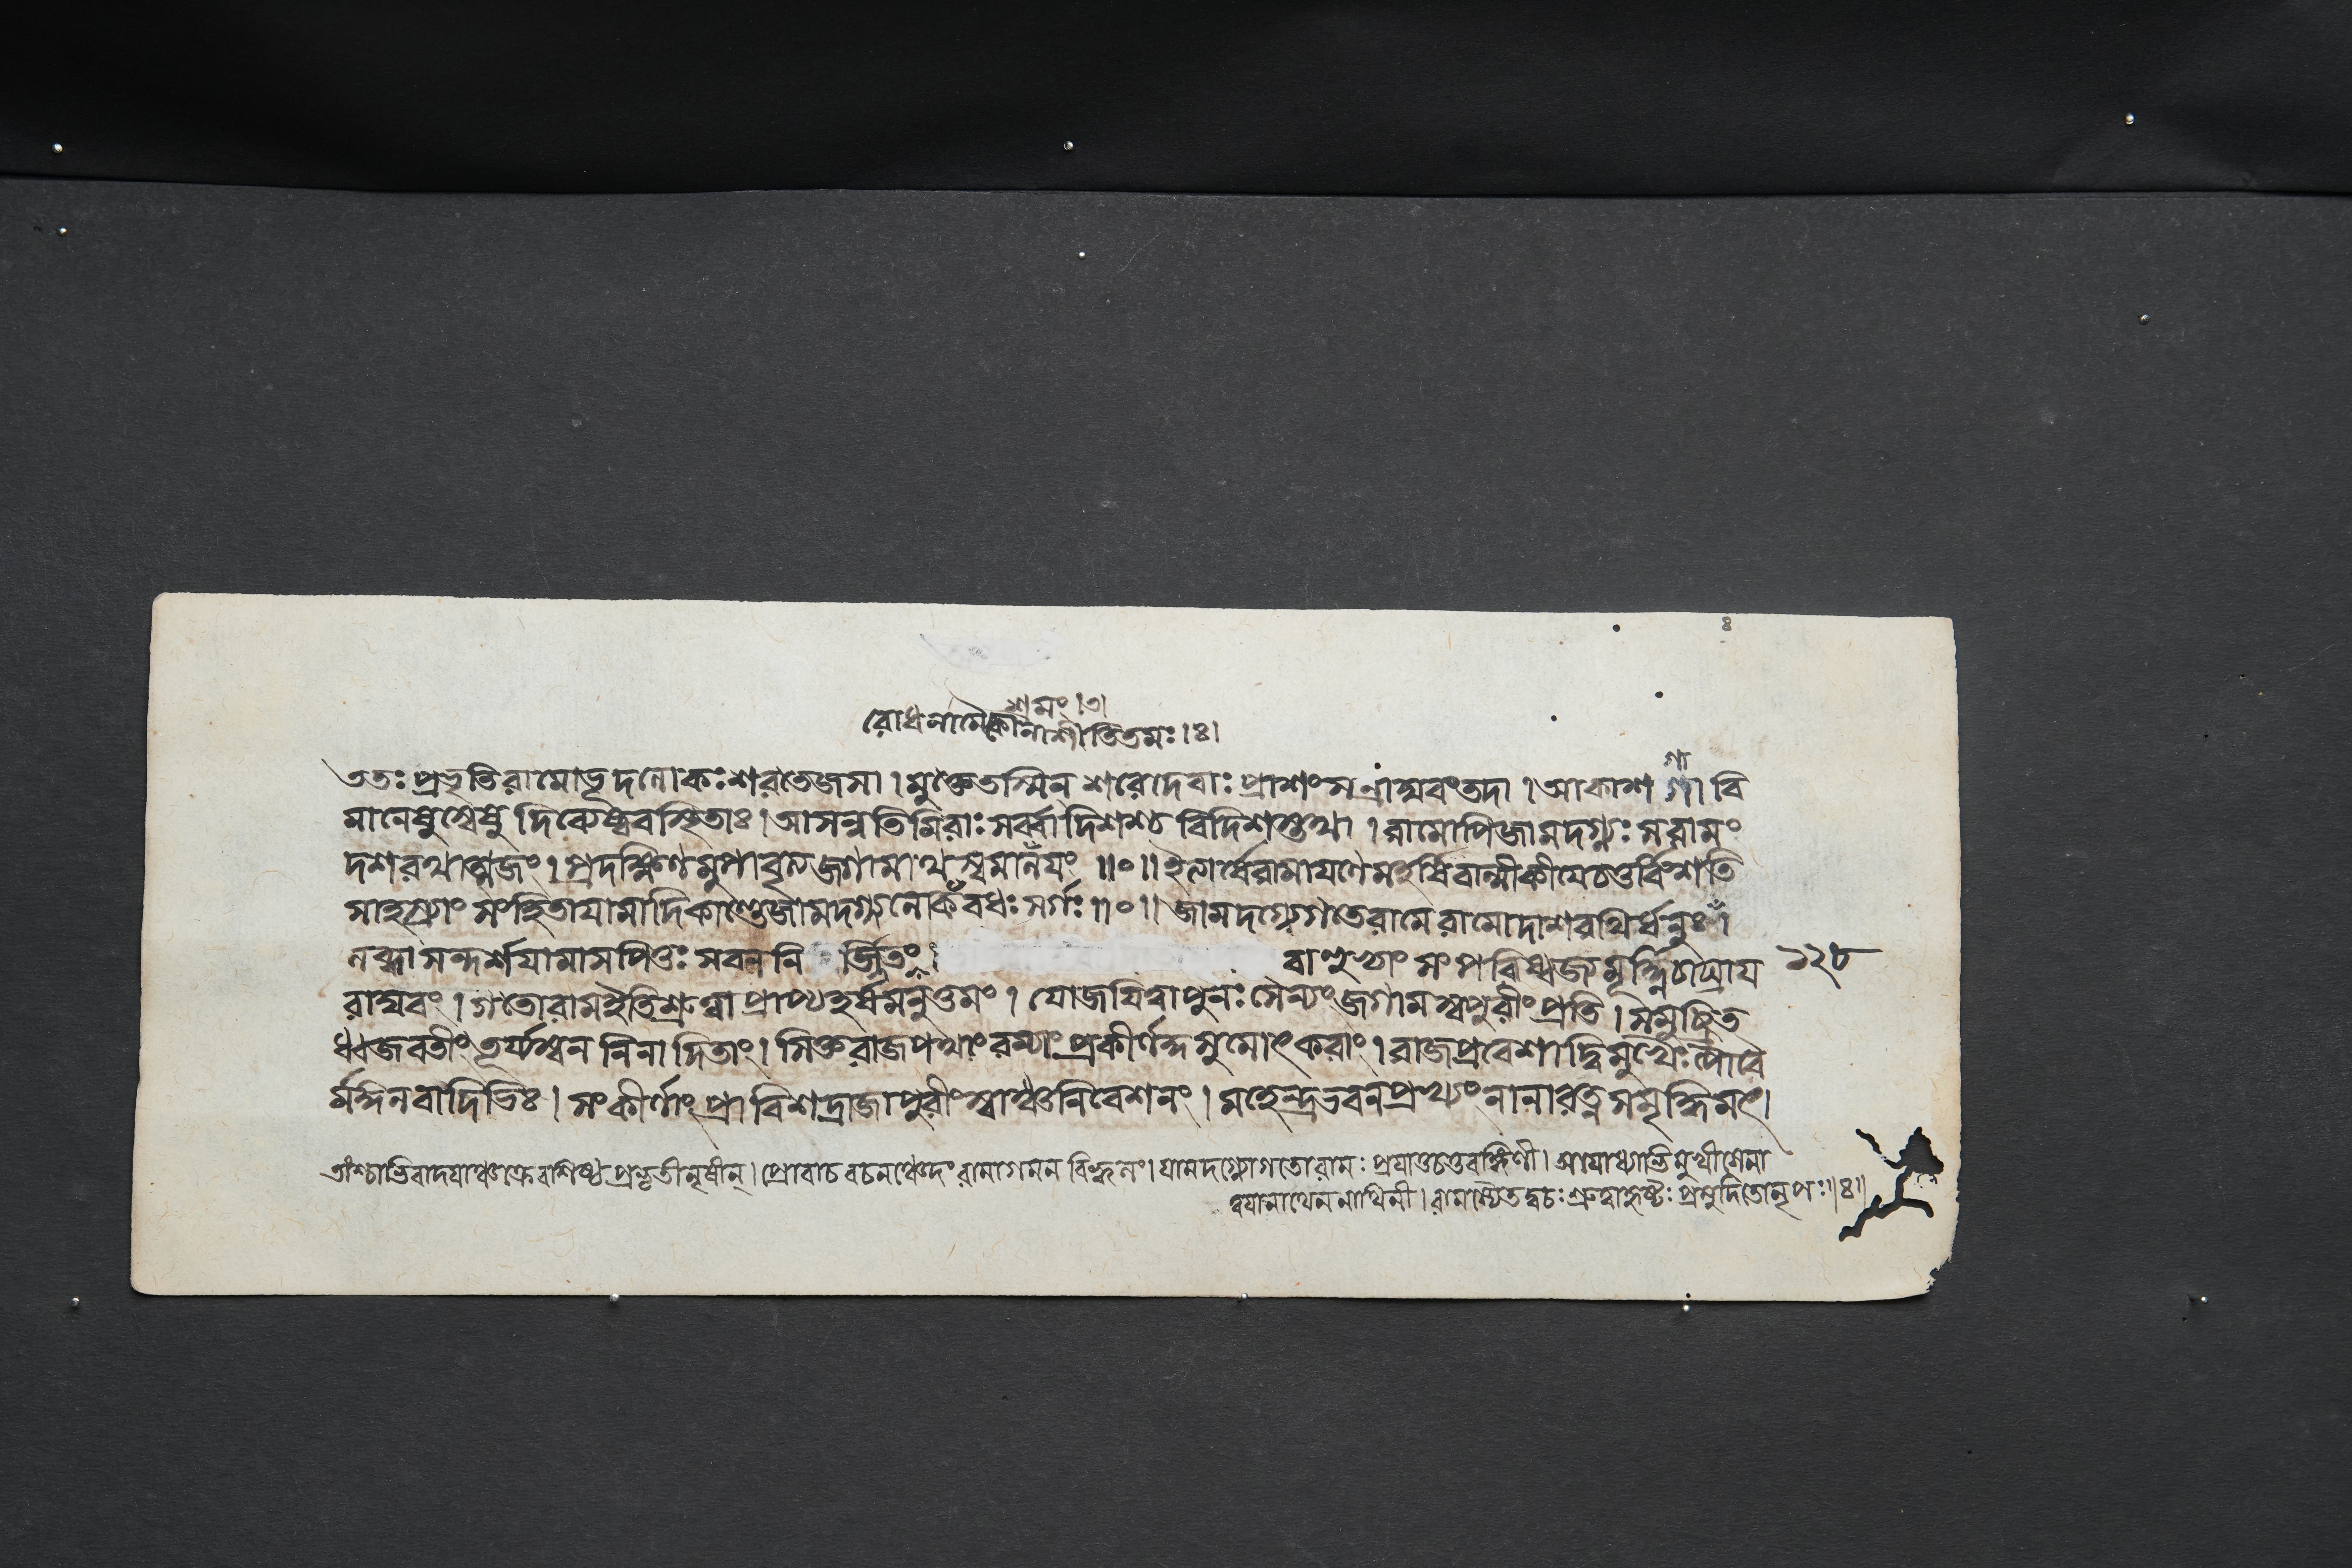 শ্রমং।৩।
রোধনামৈকোনাশীতিতমঃ।ঃ।
শা
ততঃ প্রভৃতি রামোভূদলোকঃ শরতেজসা। মুক্তে তস্মিন্ শরে দেবাঃ প্রাশংসন্রাঘবং তদা। আকাশ গা বি
মানেষু দিব্যেষ্ববস্থিতাঃ। আসন্নতিমিরাঃ সর্ব্বা দিশশ্চ বিদিশস্তথা। রামোপি জামদগ্ন্যঃ স রামং
দশরথাত্মজং। প্রদক্ষিণমুপাবৃত্য জগামাথ স্বমালয়ং॥০॥ ইত্যার্ষে রামায়ণে মহর্ষিবাল্মীকীয়ে চতুর্বিংশতি
সাহস্র্যাং সংহিতায়ামাদিকাণ্ডে জামদগ্ন্যলোকবধঃ সর্গঃ॥০॥ জামদগ্ন্যে গতে রামে রামো দাশরথির্ধনুঃ।
লব্ধ্বা সন্দর্শয়ামাস পিতুঃ সবল নি র্জ্জিতং বাহুভ্যাং সংপরিষ্বজ্য মূর্দ্ধ্নি চাঘ্রায় ১২৮
রাঘবং। গতো রাম ইতি শ্রুত্বা প্রাপ্য হর্ষমনুত্তমং। যোজয়িত্বা পুনঃ সৈন্যং জগাম স্বপুরীং প্রতি। সমুচ্ছ্রিত
ধ্বজবতীং তূর্য্যস্বননিনাদিতাং। সিক্তরাজপথাং রম্যাং প্রকীর্ণকুসুমোৎকরাং। রাজপ্রবেশাদ্বিমুখৈঃ পৌরৈ
র্মঙ্গলবাদিভিঃ। সংকীর্ণাং প্রাবিশদ্রাজা পুরীং স্বাঞ্চ নিবেশনং। মহেন্দ্রভবনপ্রখ্যং নানারত্নসমৃদ্ধিমৎ।
তাংশ্চাভিবাদয়াঞ্চক্রে বাশিষ্ঠপ্রভৃতীনৃষীন্। প্রোবাচ বচনঞ্চেদং রামাগমনবিহ্বলং। যামদগ্ন্যো গতো রামঃ প্রয়াতু চতুরঙ্গিণী। অযোধ্যাভিমুখী সেনা
ত্বয়া নাথেন নাথিনী। রামস্যৈতদ্বচঃ শ্রুত্বা হৃষ্টঃ প্রমুদিতো নৃপঃ॥ঃ॥